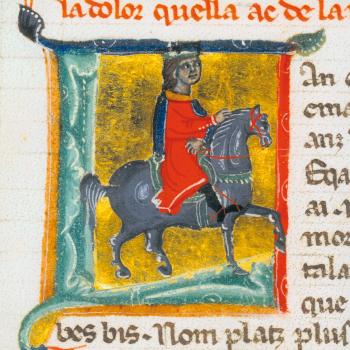 la dolor quella ac de la
An
ema
anz
Eqa
al
mor
tala
que
bes bis. Nom platz plus